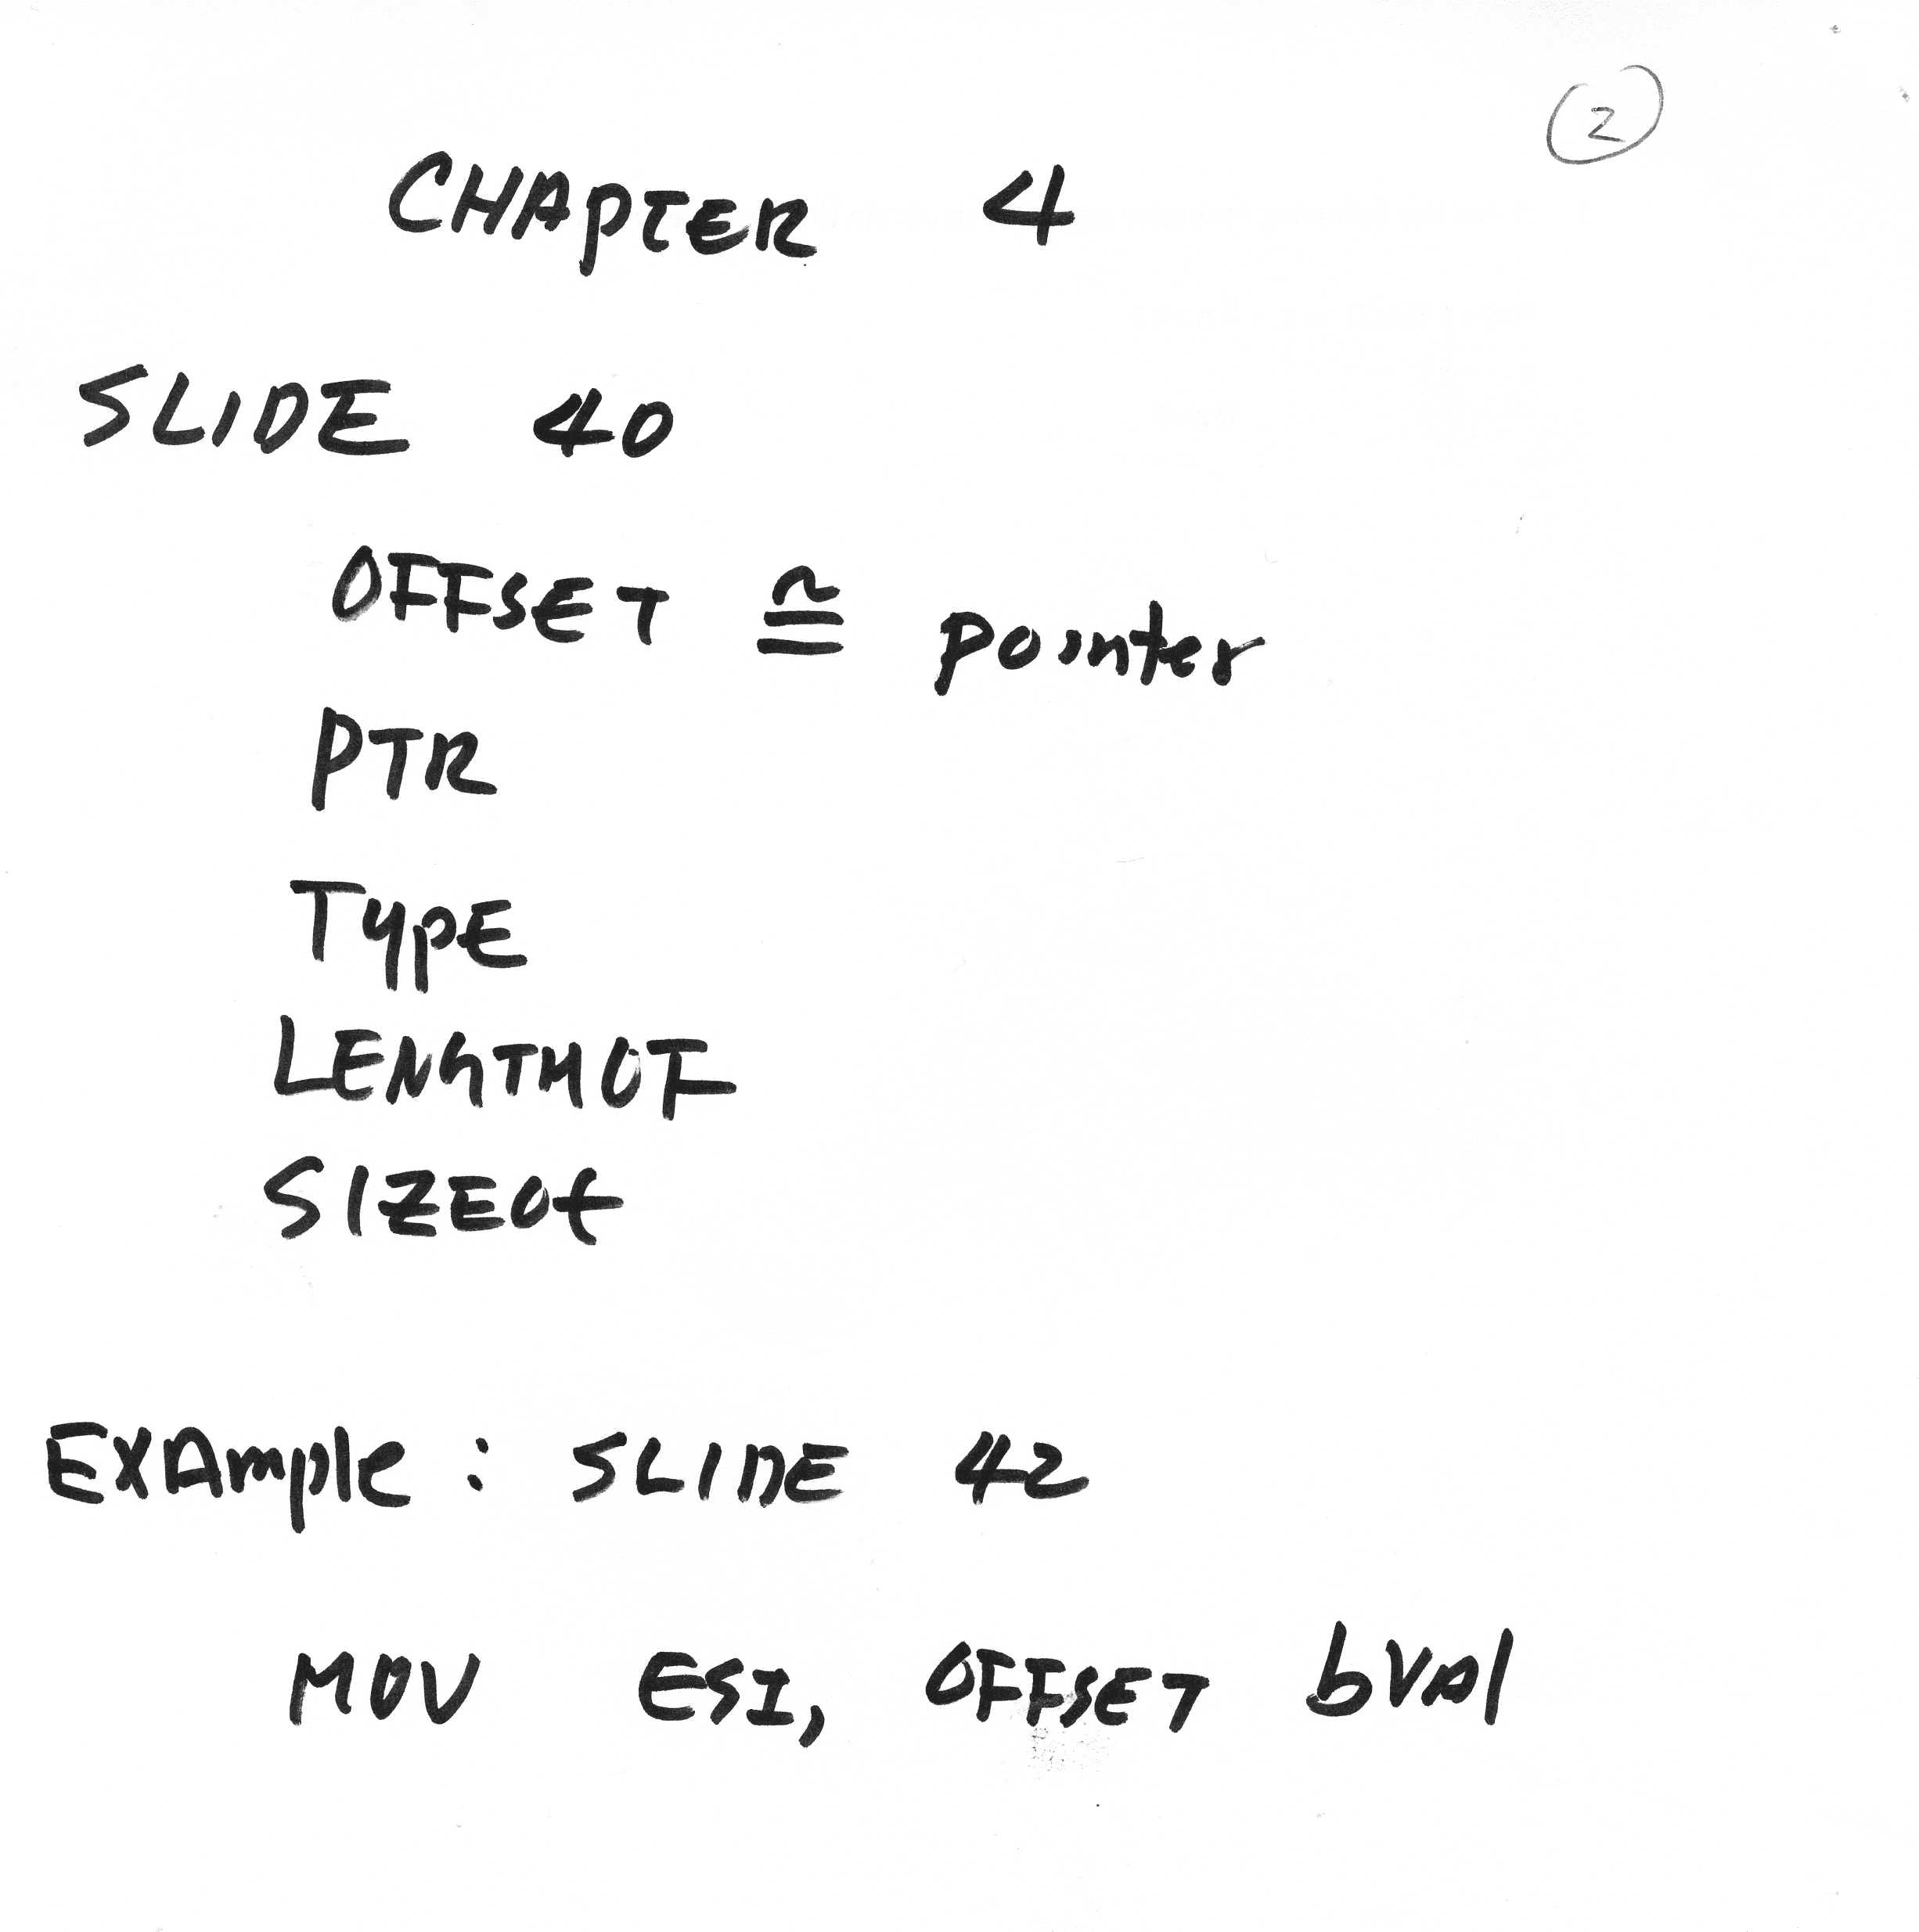 2
CHAPTER 4
SLIDE 40
OFFSET ≅ pointer
PTR
TYPE
LENGTHOF
SIZEOf
EXAmple : SLIDE 42
MOV ESI, OFFSET bVAl